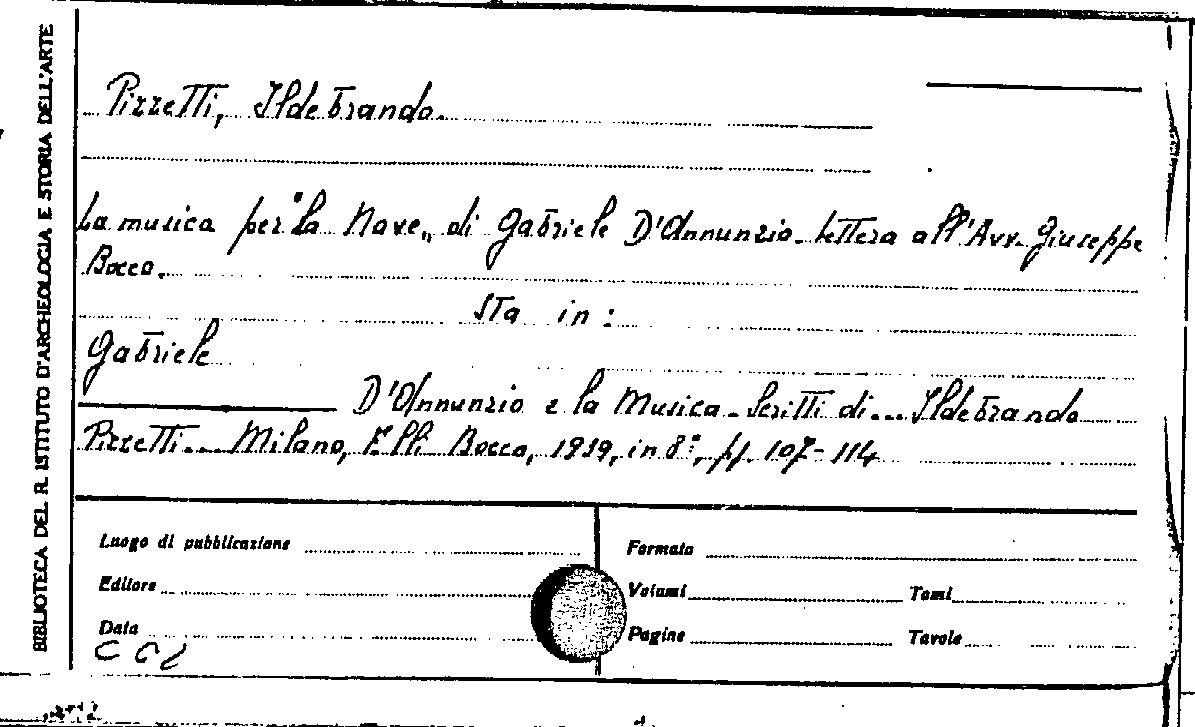 BIBLIOTECA DEL R. ISTITUTO D'ARCHEOLOGIA E STORIA DELL'ARTE
Pizzetti, Ildebrando.
La musica per "la Nave„ di Gabriele D'Annunzio. Lettera all'Avv. Giuseppe
Bocca.
Sta in:
Gabriele
D'Annunzio e la Musica. Scritti di... Ildebrando
Pizzetti... Milano, F.lli Bocca, 1939, in 8°, pp. 107-114
Luogo di pubblicazione
Formato
Editore
Volumi
Tomi
Data
Pagine
Tavole